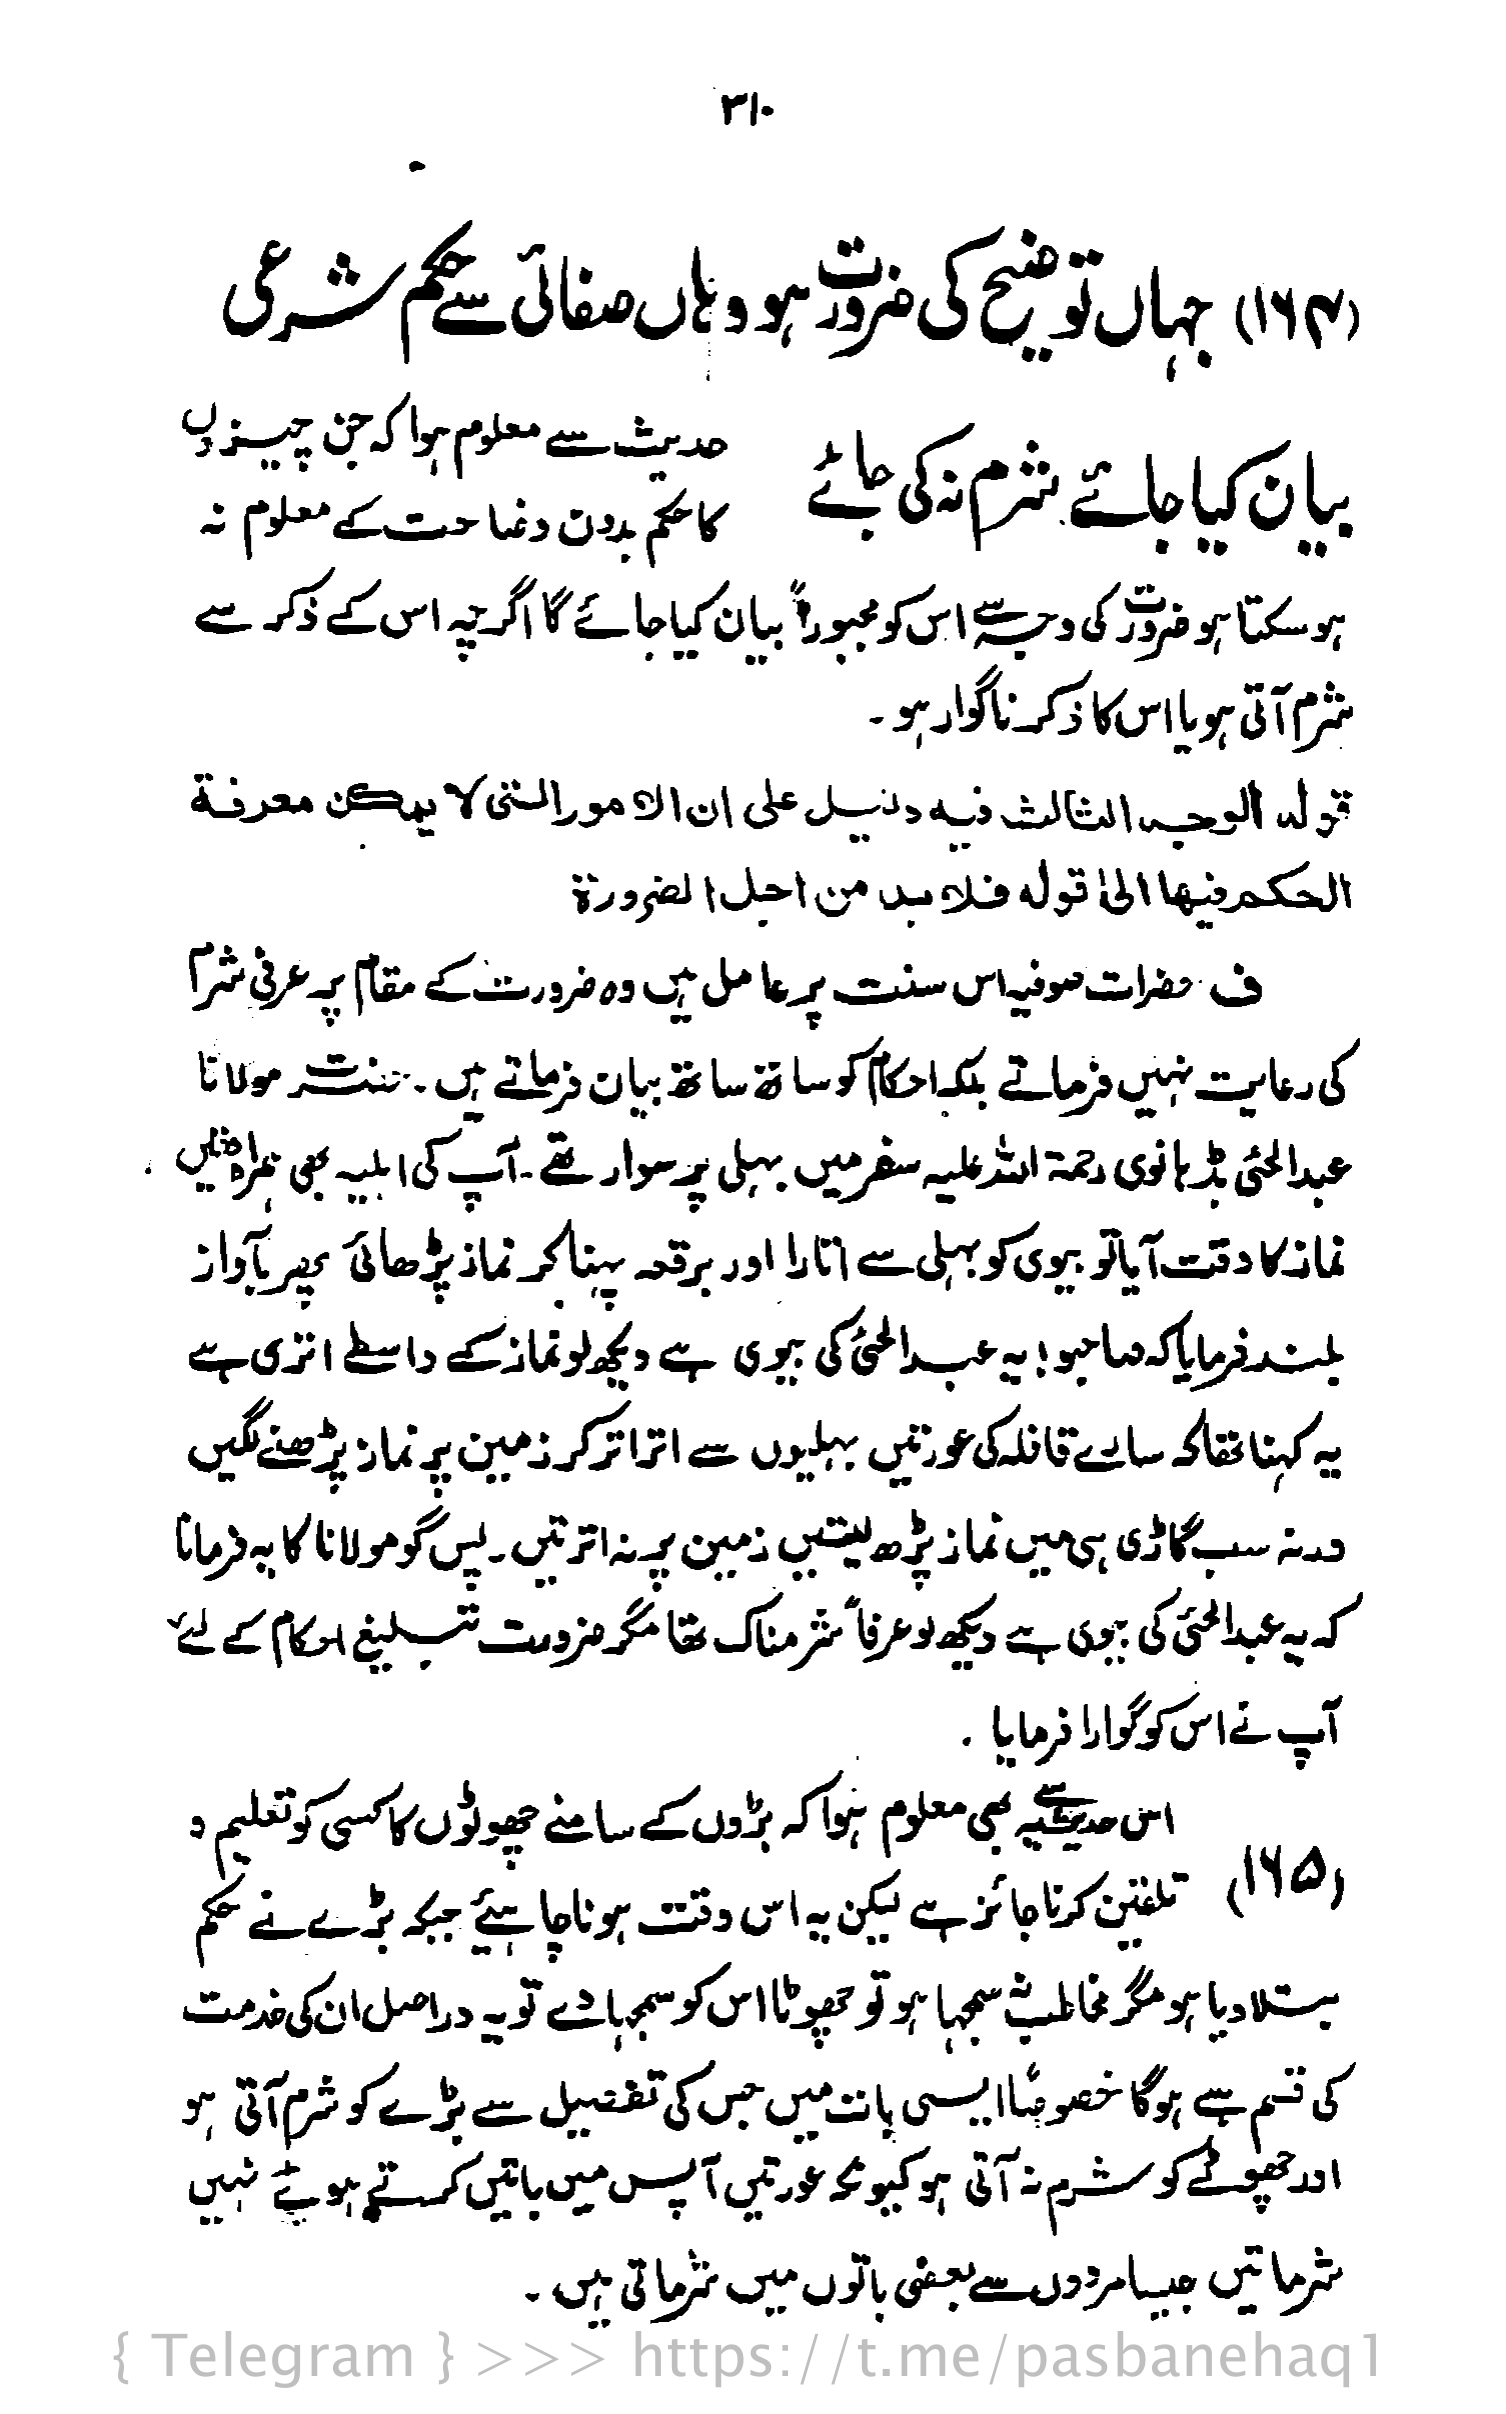 ۳۱۰
(۱۶۴) جہاں توضیح کی ضرورت ہو وہاں صفائی سے حکم شرعی
بیان کیا جائے شرم نہ کی جائے
حدیث سے معلوم ہوا کہ جن چیزوں
کا حکم بدون وضاحت کے معلوم نہ
ہو سکتا ہو ضرورت کی وجہ سے اس کو مجبوراً بیان کیا جائے گا اگرچہ اس کے ذکر سے
شرم آتی ہو یا اس کا ذکر ناگوار ہو ۔
قوله الوجه الثالث فيه دليل على ان الامور التى لا يمكن معرفة
الحكم فيها الىٰ قوله فلا بد من اجل الضرورة
ف حضرات صوفیہ اس سنت پر عامل ہیں وہ ضرورت کے مقام پر عرفی شرم
کی رعایت نہیں فرماتے بلکہ احکام کو ساتھ ساتھ بیان فرماتے ہیں ۔ حضرت مولانا
عبدالحئی بڈہانوی رحمۃ اللہ علیہ سفر میں بہلی پر سوار تھے ۔ آپ کی اہلیہ بھی ہمراہ تھیں
نماز کا وقت آیا تو بیوی کو بہلی سے اتارا اور برقعہ پہنا کر نماز پڑھائی پھر بآواز
بلند فرمایا کہ صاحبو! یہ عبدالحئی کی بیوی ہے دیکھ لو نماز کے واسطے اتری ہے
یہ کہنا تھا کہ سارے قافلہ کی عورتیں بہلیوں سے اترا تر کر زمین پر نماز پڑھنے لگیں
ورنہ سب گاڑی ہی میں نماز پڑھ لیتیں زمین پر نہ اترتیں ۔ پس گو مولانا کا یہ فرمانا
کہ یہ عبدالحئی کی بیوی ہے دیکھ لو عرفاً شرمناک تھا مگر ضرورت تبلیغ احکام کے لئے
آپ نے اس کو گوارا فرمایا ۔
اس حدیث سے یہ بھی معلوم ہوا کہ بڑوں کے سامنے چھوٹوں کا کسی کو تعلیم و
(۱۶۵) تلقین کرنا جائز ہے لیکن یہ اس وقت ہونا چاہیئے جبکہ بڑے نے حکم
بتلا دیا ہو مگر مخاطب نہ سمجہا ہو تو چھوٹا اس کو سمجہا دے تو یہ دراصل ان کی خدمت
کی قسم سے ہوگا خصوصًا ایسی بات میں جس کی تفصیل سے بڑے کو شرم آتی ہو
اور چھوٹے کو شرم نہ آتی ہو کیونکہ عورتیں آپس میں باتیں کرتے ہوئے نہیں
شرماتیں جیسا مردوں سے بعضی باتوں میں شرماتی ہیں ۔
{ Telegram } >>> https://t.me/pasbanehaq1